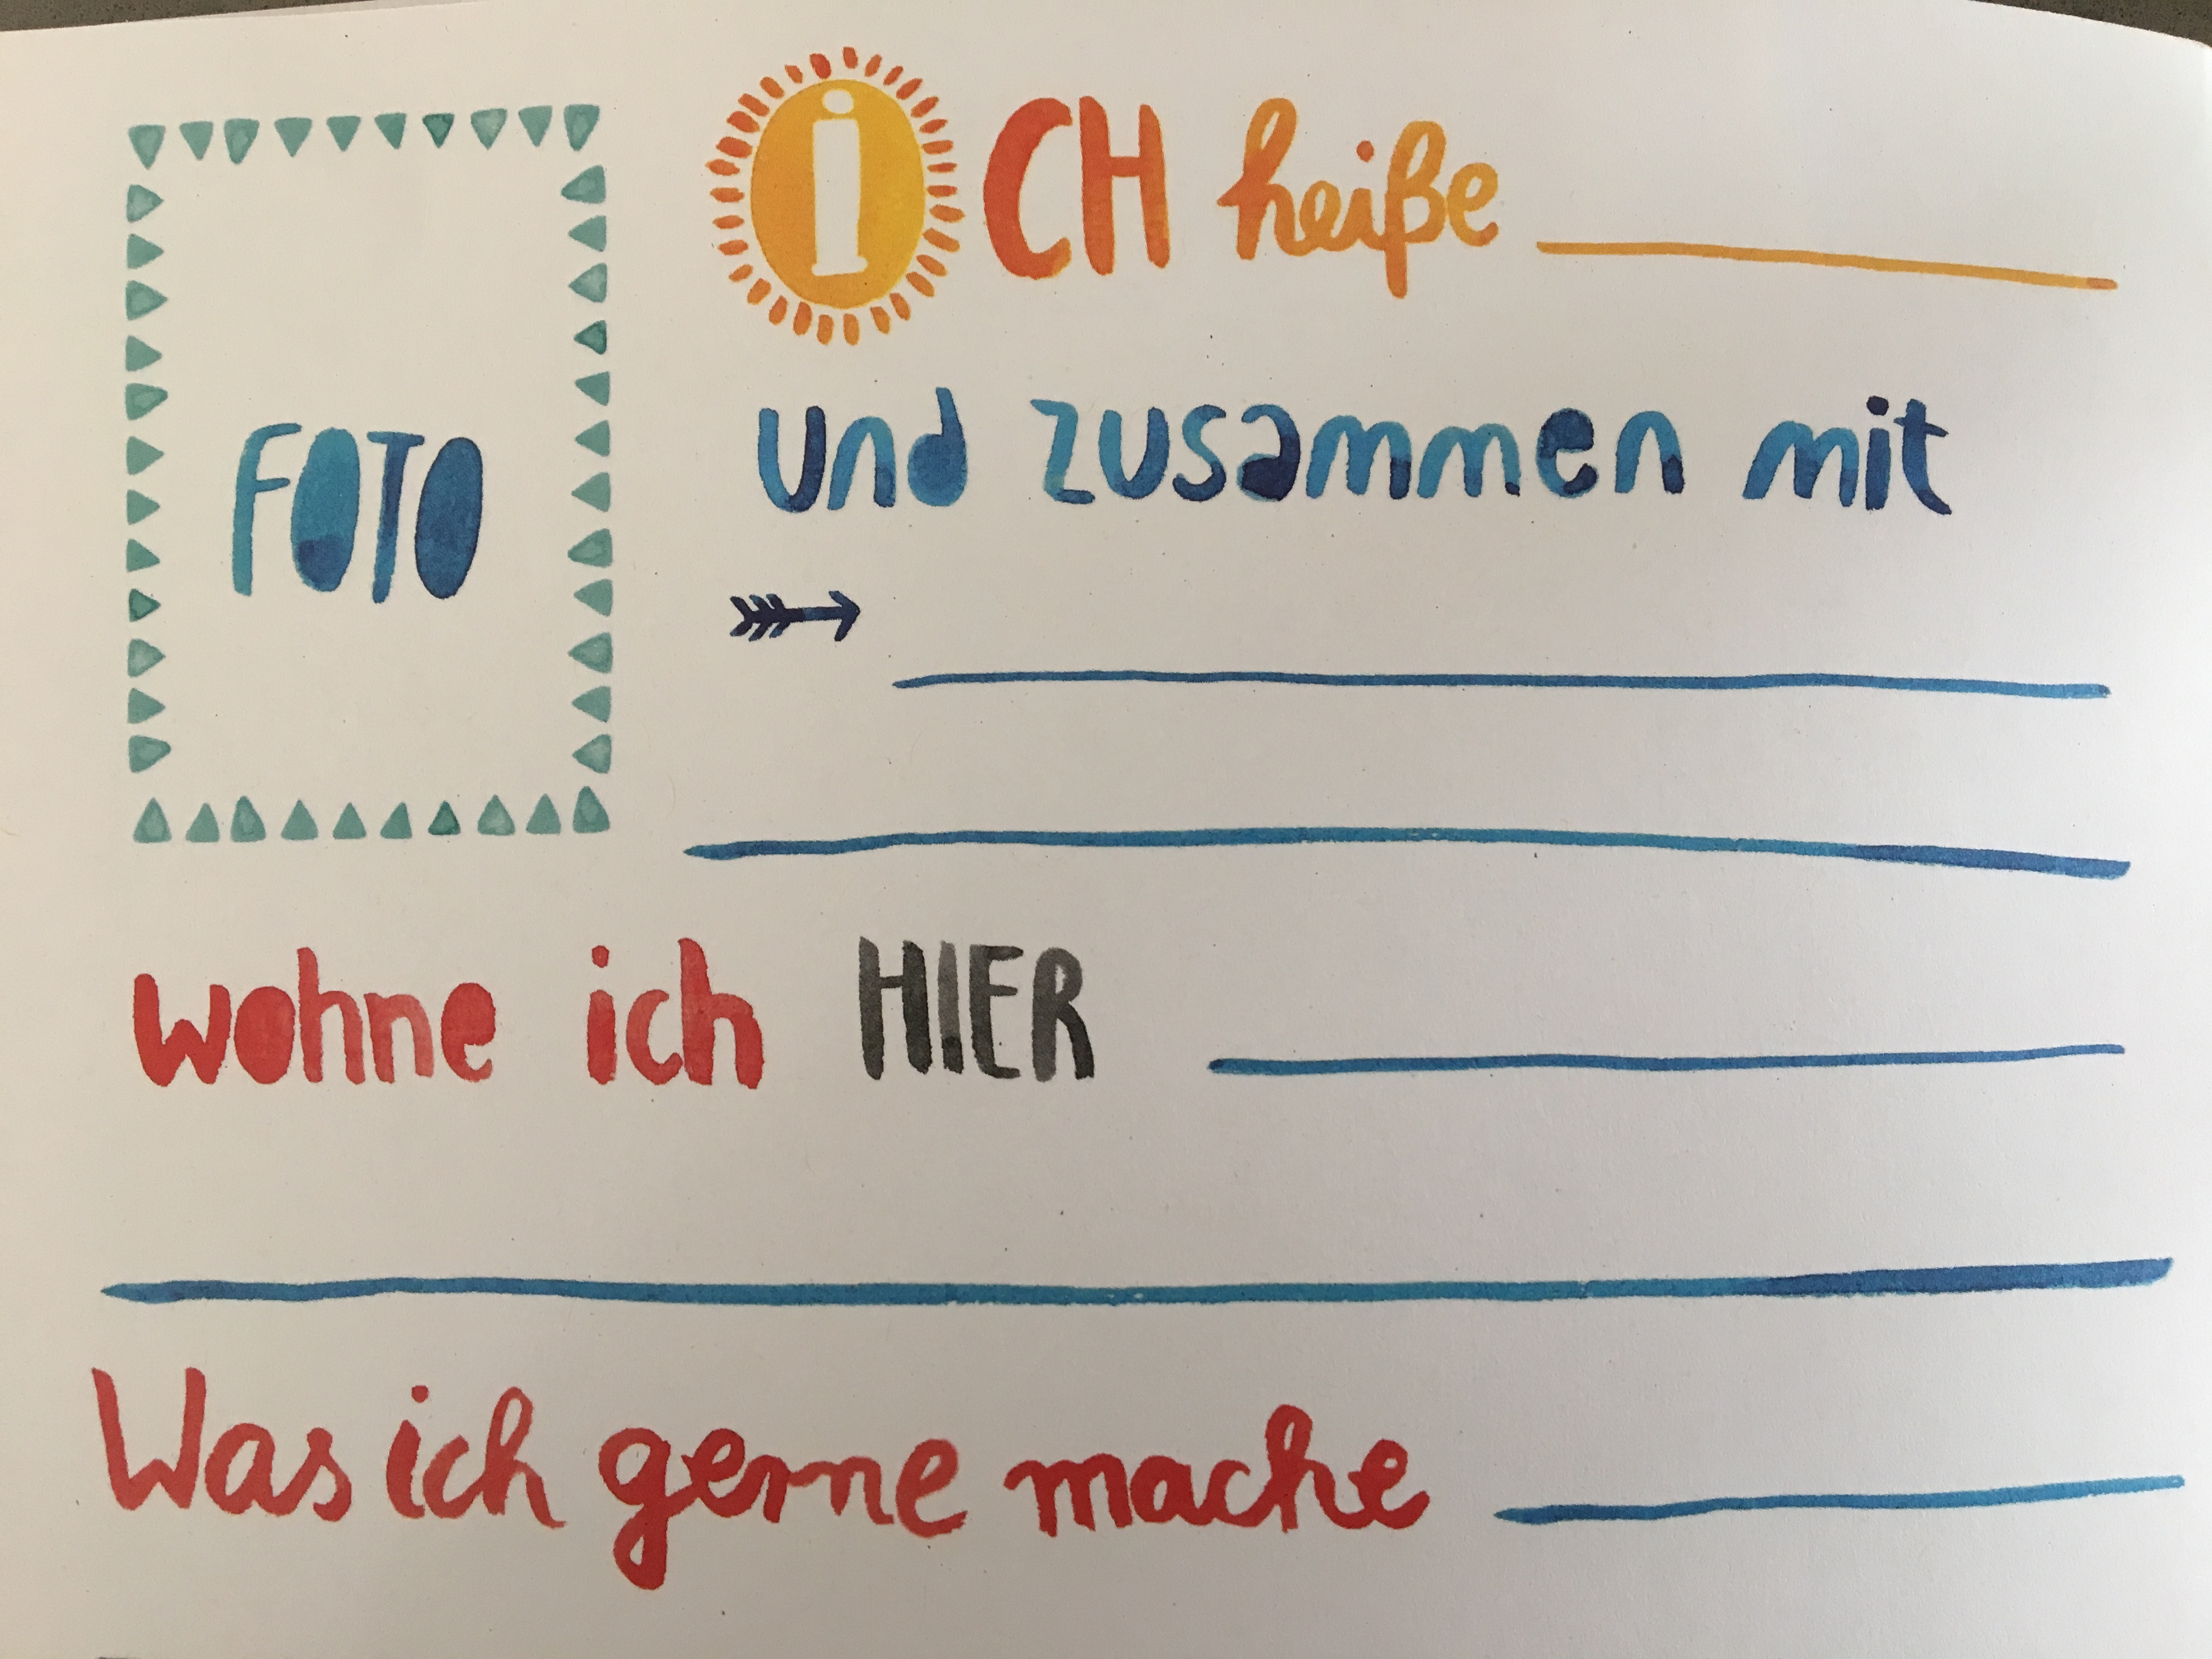 FOTO
iCH heiße
und zusammen mit
wohne ich HIER
Was ich gerne mache